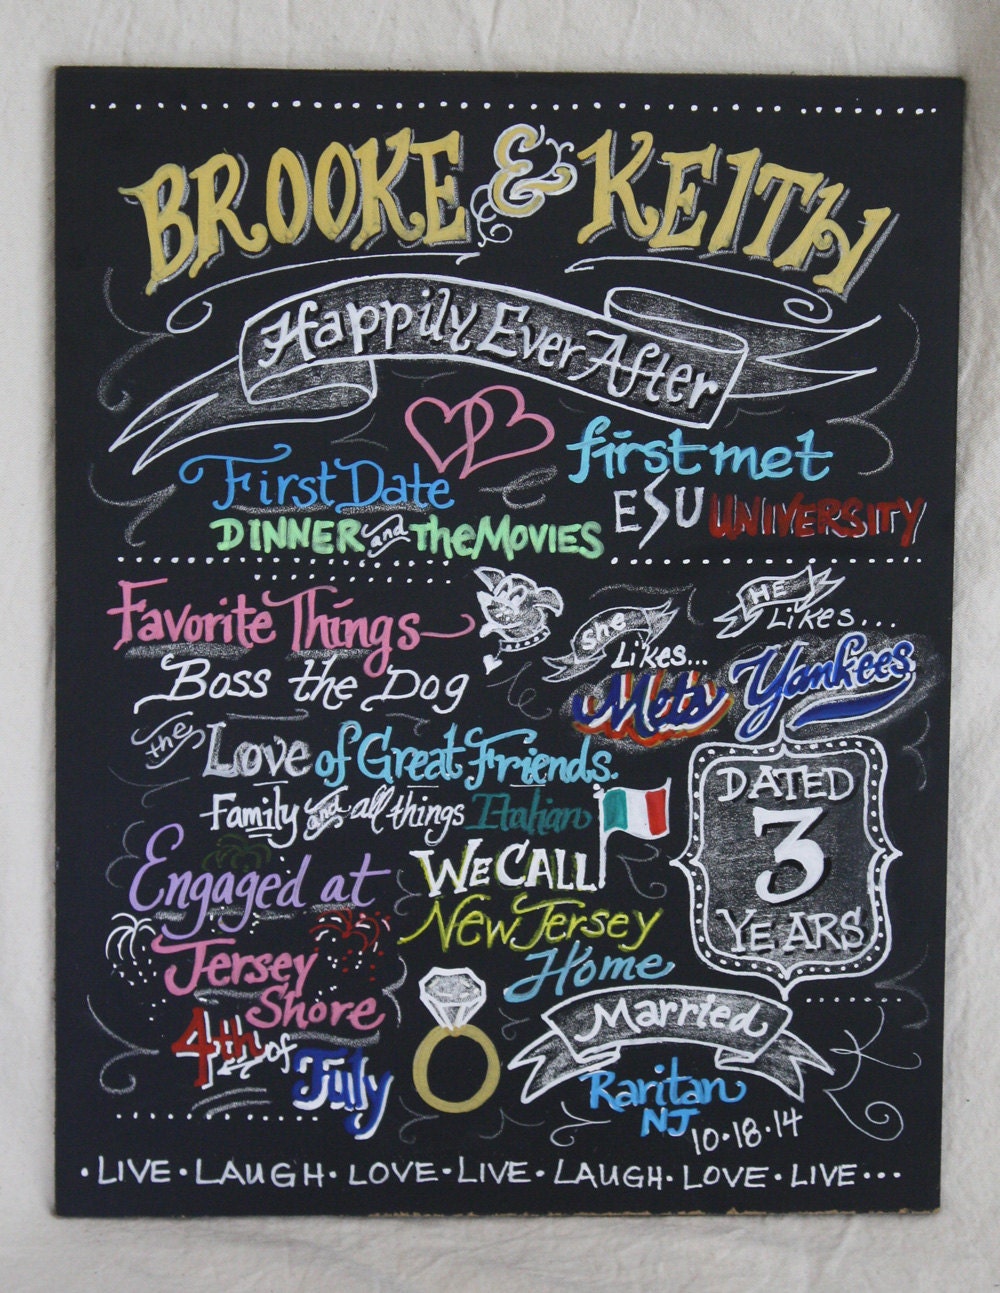 BROOKE & KEITH
Happily Ever After
First Date
DINNER and the MOVIES
first met
ESU UNIVERSITY
Favorite Things
Boss the Dog
the Love of Great Friends.
Family and all things Italian
She
Likes...
Mets
HE
Likes...
Yankees
DATED
3
YEARS
Engaged at
Jersey
Shore
4th of
July
WE CALL
New Jersey
Home
Married
Raritan
NJ
10·18·14
·LIVE·LAUGH·LOVE·LIVE·LAUGH·LOVE·LIVE···